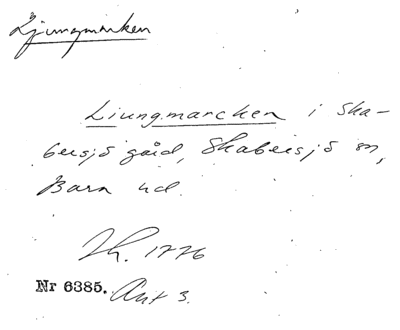 Ljungmarken
Liungmarcken i Ska-
bersjö gård, Skabersjö sn,
Bara hd.
Th. 1776
Nr 6385. Ant 3.